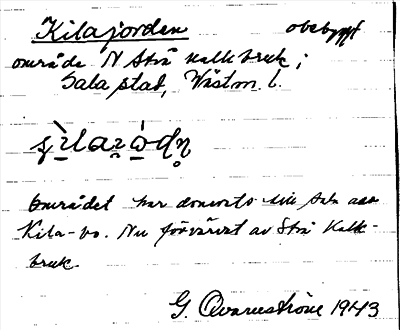 Kilajorden obebyggt
område N Strå kalkbruk i
Sala stad, Västm. l.
Området har donerats till Sala av
Kila-bo. Nu förvärvat av Strå Kalk-
bruk.
G. Qvarnström 1943